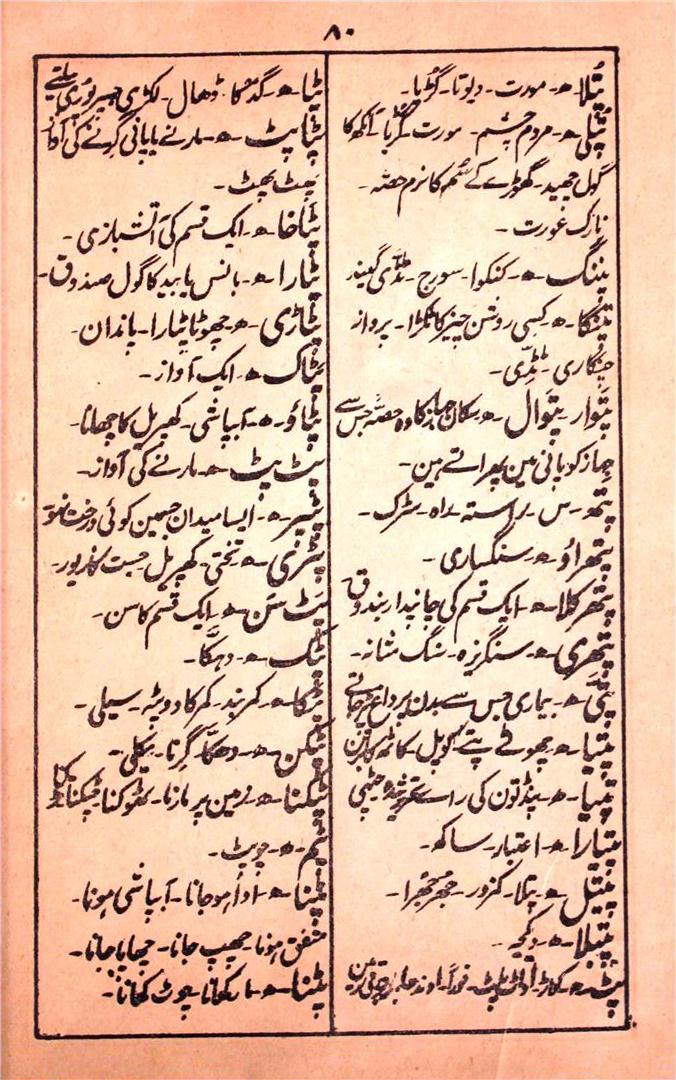 ۸۰
پُتلا۔ ھ۔ مورت۔ دیوتا۔ گڑیا۔
پُتلی۔ ھ۔ مردم چشم۔ مورت گڑیا آنکھ کا
گول چھید۔ گھوڑے کے سُم کا نرم حصہ۔
نازک عورت۔
پتنگ۔ ھ۔ کنکوا۔ سورج۔ ٹڈی گیند
پتنگا۔ ھ۔ کسی روشن چیز کا ٹکڑا۔ پرواز
چنگاری۔ ٹڈی۔
پتوار۔ پتوال۔ ھ۔ سکان جہاز کا وہ حصہ جس سے
جہاز کو پانی مین پھراتے ہین۔
پتھ۔ س۔ راستہ۔ راہ۔ سڑک۔
پتھراؤ۔ ھ۔ سنگساری۔
پتھر کلا۔ ھ۔ ایک قسم کی چانپدار بندوق
پتھری۔ ھ۔ سنگریزہ۔ سنگ مثانہ۔
پتی۔ ھ۔ بیماری جس سے بدن پر داغ
پتیا۔ ھ۔ چھوٹے پتے کوپل۔
پتیا۔ ھ۔ پنڈتون کی راے چٹھی
پتیارا۔ ھ۔ اعتبار۔ ساکھ۔
پتیل۔ ھ۔ پتلا۔ کمزور۔ جھرجھرا۔
پتیلا۔ ھ۔ دیگچہ۔
پٹ۔ ھ۔ کواڑ۔ فوراً۔ اوندھا
پٹا۔ ھ۔ گدکا۔ ڈھال۔ لکڑی
پٹاپٹ۔ ھ۔ مارنے یا پانی گرنے کی آواز
پھٹ پھٹ۔
پٹاخا۔ ھ۔ ایک قسم کی آتشبازی۔
پٹارا۔ ھ۔ بانس یا بید کا گول صندوق۔
پٹاری۔ ھ۔ چھوٹا پٹارا۔ پاندان۔
پٹاک۔ ھ۔ ایک آواز۔
پٹاؤ۔ ھ۔ آبپاشی۔ کھپریل کا چھانا۔
پٹ پٹ۔ ھ۔ مارنے کی آواز۔
پٹپر۔ ھ۔ ایسا میدان جسمین کوئی درخت نہو
پٹری۔ ھ۔ تختی۔ کھپریل۔
پٹ سن۔ ھ۔ ایک قسم کا سن۔
پٹک۔ ھ۔ دہکا۔
پٹکا۔ ھ۔ کمر بند۔ کمر کا دوپٹہ۔ سیلی۔
پٹکن۔ ھ۔ دھکا۔ گرنا۔
پٹکنا۔ ھ۔ زمین پر مارنا۔ ٹھوکنا۔
پٹم۔ ھ۔ چوپٹ۔
پٹنا۔ ھ۔ ادا ہو جانا۔ آبپاشی ہونا۔
متفق ہونا۔ چھپ جانا۔ چھایا جانا۔
پٹنا۔ ھ۔ مار کھانا۔ چوٹ کھانا۔